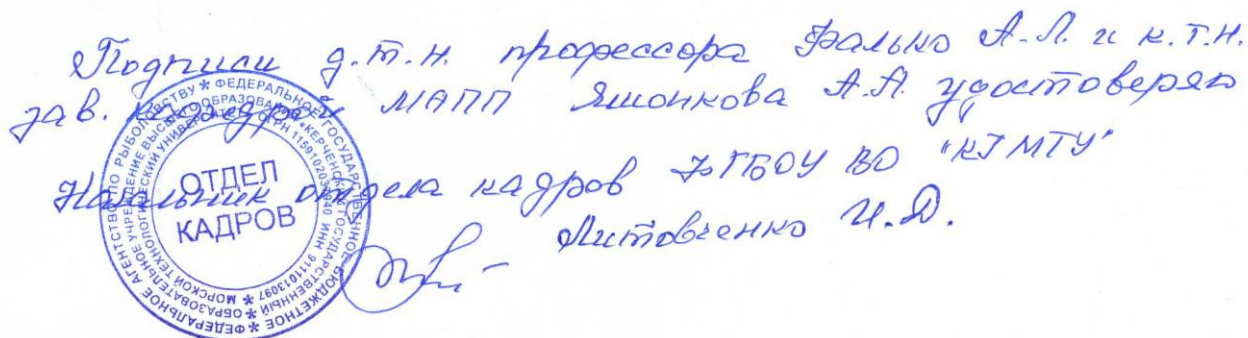 Подписи д.т.н. профессора Фалько А.Л. и к.т.н.
зав. кафедрой МАПП Яшонкова А.А. удостоверяю
Начальник отдела кадров ФГБОУ ВО "КГМТУ"
Литовченко И.Д.
ОТДЕЛ
КАДРОВ
ФЕДЕРАЛЬНОЕ АГЕНТСТВО ПО РЫБОЛОВСТВУ * ФЕДЕРАЛЬНОЕ ГОСУДАРСТВЕННОЕ БЮДЖЕТНОЕ *
ОБРАЗОВАТЕЛЬНОЕ УЧРЕЖДЕНИЕ ВЫСШЕГО ОБРАЗОВАНИЯ «КЕРЧЕНСКИЙ ГОСУДАРСТВЕННЫЙ *
МОРСКОЙ ТЕХНОЛОГИЧЕСКИЙ УНИВЕРСИТЕТ» ОГРН ИНН 9111013097 *